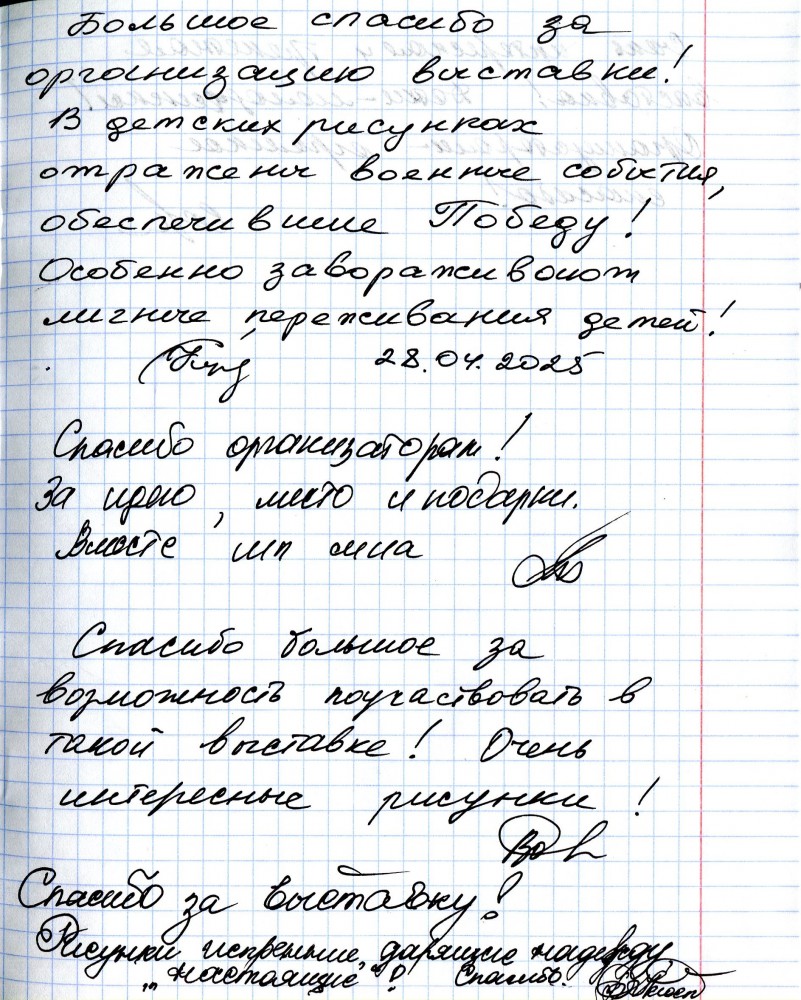 Большое спасибо за
организацию выставки!
В детских рисунках
отражены военные события,
обеспечившие Победу!
Особенно завораживают
личные переживания детей!
28.04.2025
Спасибо организаторам!
За идею, место и подарки.
Вместе
Спасибо большое за
возможность поучаствовать в
такой выставке! Очень
интересные рисунки!
Спасибо за выставку!
Рисунки искренние, дарящие надежду
"настоящие"! Спасибо.